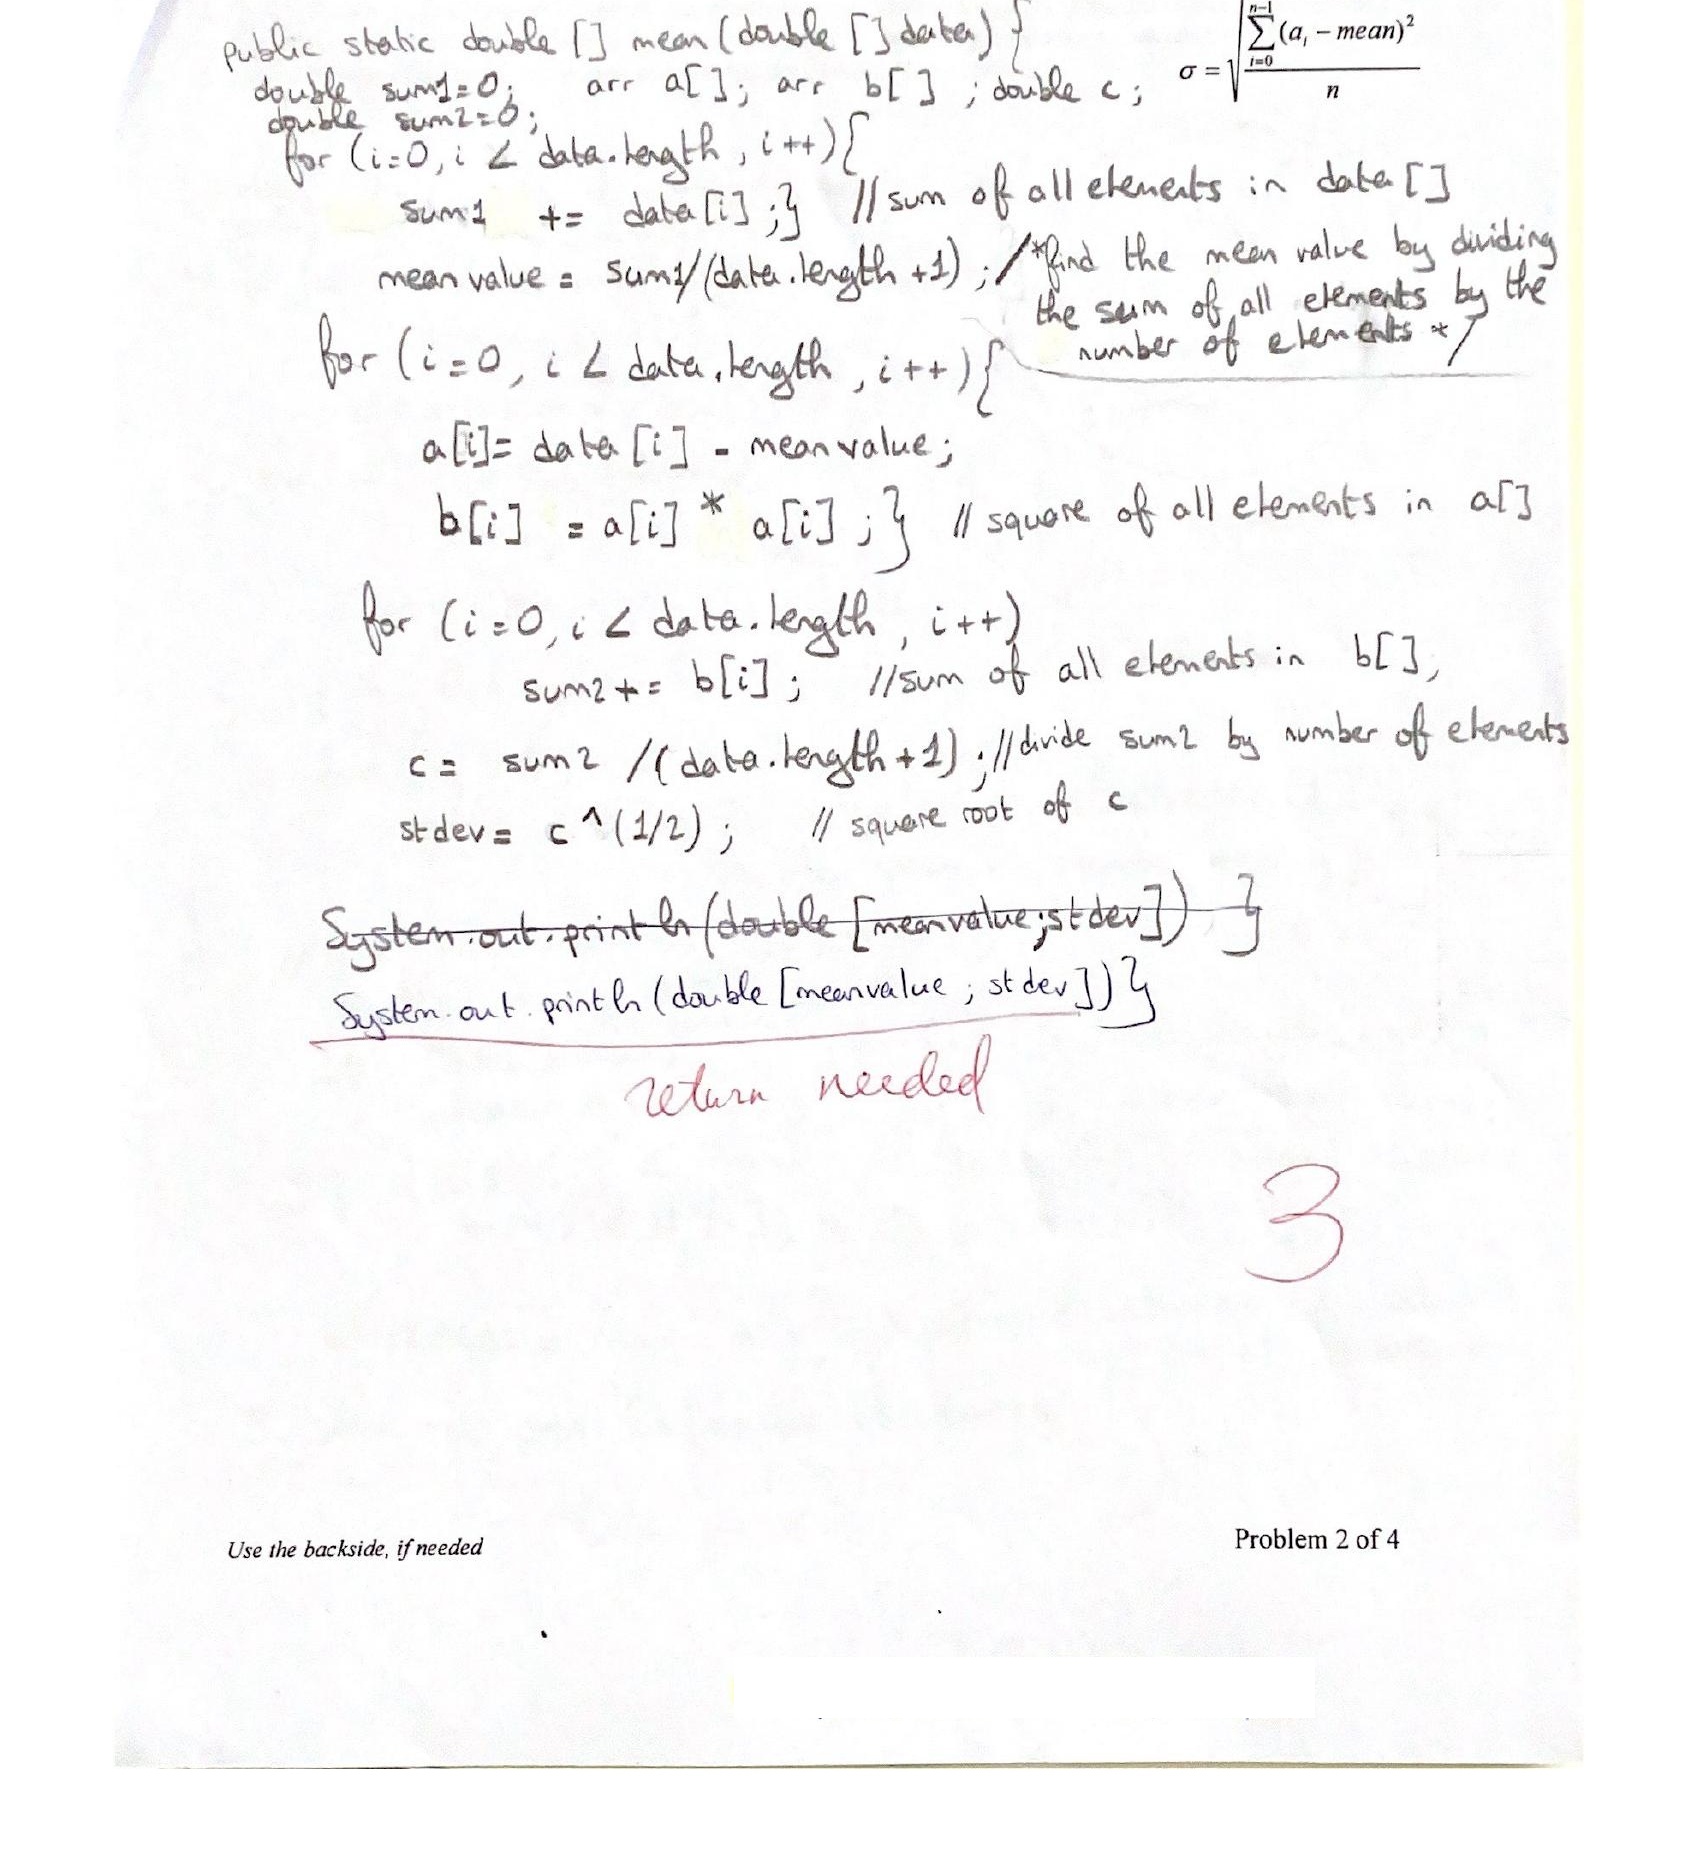 public static double [] mean (double [] data) {
double sum1=0; arr a[]; arr b[] ; double c;
σ = √ n-1 ∑ i=0 (aᵢ – mean)² / n
double sum2=0;
for (i=0, i < data.length, i++){
sum1 += data[i];} // sum of all elements in data []
mean value = sum1/(data.length +1) ; /*find the mean value by dividing
the sum of all elements by the
number of elements */
for (i=0, i < data.length, i++){
a[i]= data [i] - meanvalue;
b[i] = a[i] * a[i] ;} // square of all elements in a[]
for (i=0, i < data.length, i++)
sum2 += b[i]; //sum of all elements in b[],
c = sum2 /(data.length+1) ;//divide sum2 by number of elements
stdev = c^(1/2) ; // square root of c
System.out.println(double [meanvalue;stdev]) }
System.out.println(double [meanvalue ; stdev])}
return needed
3
Use the backside, if needed
Problem 2 of 4